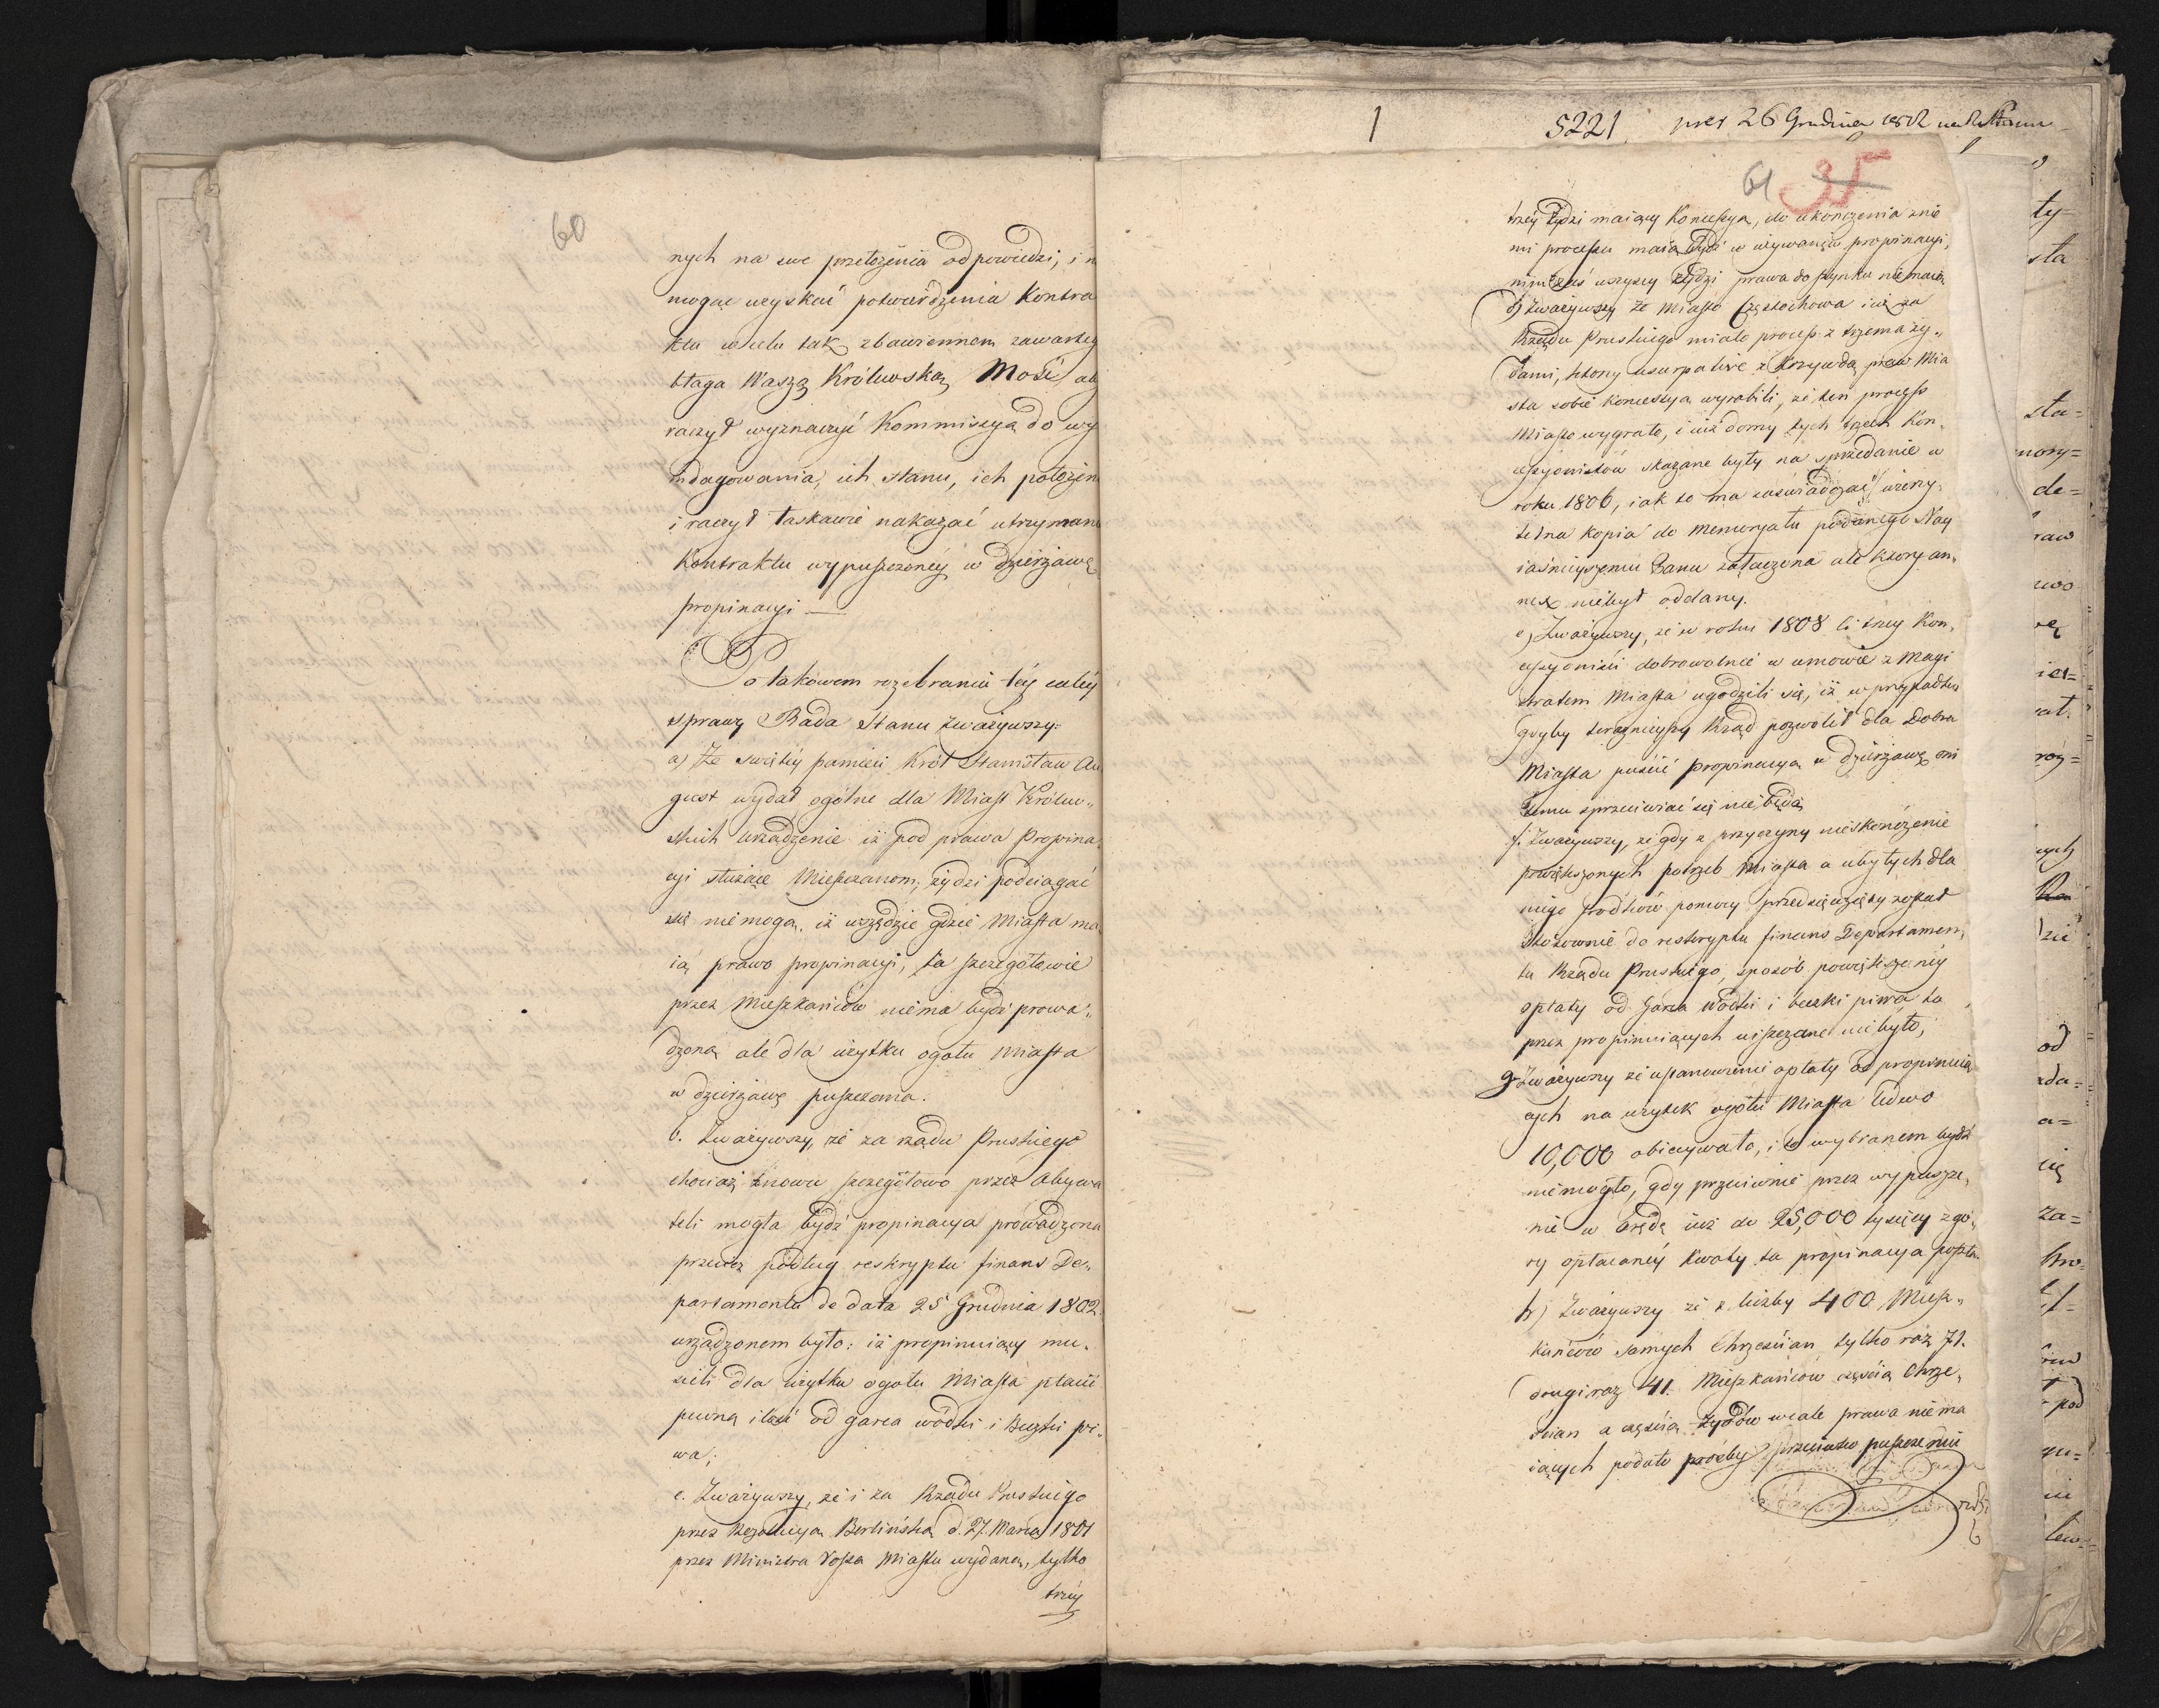 60
nych na swe przełożenia odpowiedzi, i n
mogąc uzyskać potwierdzenia Kontra
ktu w celu tak zbawiennem zawartey
błaga Waszą Królewską Mość ab
raczył wyznaczyć Kommissyą do wy
indagowania, ich stanu, ich położen
i raczył łaskawie nakazać utrzymani
Kontraktu wypuszczoney w dzierżawę
propinacyi —
Po takowem rozebraniu tey całey
sprawy Rada Stanu zważywszy:
a) Że świętey pamięci Król Stanisław Au
gust wydał ogólne dla Miast Królew„
skich urządzenie iż pod prawa Propina„
cyi służące Mieszczanom, żydzi podciągać
się niemogą, iż wszędzie gdzie Miasta ma
ią prawo propinacyi, ta szczegółowie
przez Mieszkańców niema bydź prowa„
dzoną ale dla użytku ogółu Miasta
w dzierżawę puszczona.
b. Zważywszy, że za rządu Pruskiego
chociaż znowu szczegółowo przez Obywa
teli mogła bydź propinacya prowadzona
przecież podług reskryptu finans De„
partamentu de data 25 Grudnia 1802
urządzonem było: iż propinuiący mu„
sieli dla użytku ogółu Miasta płacić
pewną ilość od garca wódki i Beczki pi„
wa;
c. Zważywszy, że i za Rządu Pruskiego
przez Rezolucyą Berlińską d. 27. Marca 1801
przez Ministra Vossa Miastu wydaną, tylko
trzey
1
5221 prez 26 Grudnia
61 35
trzey Żydzi maiący Koncessyą, do ukończenia z nie
mi processu maią bydź w używaniu propinacyi,
inni zaś wszyscy żydzi prawa do szynku nie maią
d) Zważywszy że Miasto Częstochowa iuż za
Rządu Pruskiego miało process z trzema ży„
dami, którzy usurpative z krzywdą praw Mia
sta sobie koncessyą wyrobili, że ten process
Miasto wygrało, i iuż domy tych trzech Kon„
cessyonistów skazane były na sprzedanie w
roku 1806, iak to ma zaświadczać wierzy„
telna kopia do Memoryału podanego Nay
iaśnieyszemu Panu załączona ale który an„
nex niebył oddany.
e) Zważywszy, że w roku 1808 ci trzey Kon„
cessyoniści dobrowolnie w umowie z Magi
stratem Miasta ugodzili się, iż w przypadku
gdyby teraznieyszy Rząd pozwolił dla Dobra
Miasta puścić Propinacyą w dzierżawę oni
temu sprzeciwiać się nie będą
f. Zważywszy, że gdy z przyczyny nieskończenie
powiększonych potrzeb Miasta a ubytych dla
niego srodków pomocy przedsięwzięty został
stosownie do reskryptu finans Departamen„
tu Rządu Pruskiego, sposób powiększeney
opłaty od Garca Wódki i beczki piwa ta
przez propinuiących uiszczane nie było;
g. Zważywszy że ustanowienie opłaty od propinuią
cych na użytek ogółu Miasta ledwo
10,000 obiecywało, i to wybranem bydź
niemogło, gdy przeciwnie przez wypuszcze„
nie w Arędę iuż do 25,000 tysięcy z gó„
ry opłacaney kwoty ta propinacya poszła.
h) Zważywszy że z liczby 400 Miesz„
kańców samych Chrześcian tylko raz 71.
drugi raz 41. Mieszkańców częścią Chrze„
ścian a częścią Żydów wcale prawa nie ma
iących podało prośby przeciwko puszczeniu
ty=
sta
sta=
mory=
de=
raw
wo
rę
ier=
rat.
roz=
zie
od
zda=
a=
cię
za=
pod